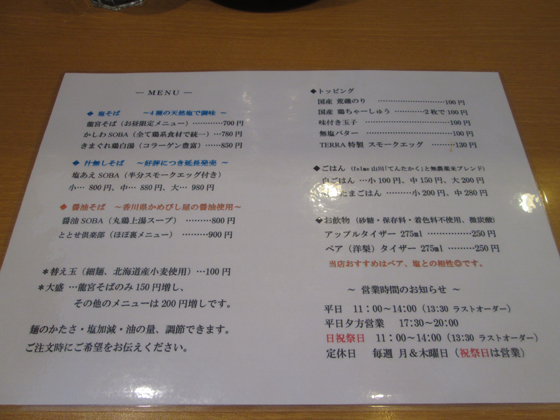 ― MENU ―
◆ 塩そば ～4種の天然塩で調味～
龍宮そば（お昼限定メニュー）………700円
かしわSOBA（全て鶏系食材で統一）…780円
きまぐれ鶏白湯（コラーゲン豊富）……850円
◆ 汁無しそば ～好評につき延長発売～
塩あえSOBA（半分スモークエッグ付き）
小… 800円、中… 880円、大… 980円
◆ 醤油そば ～香川県かめびし屋の醤油使用～
醤油SOBA（丸鶏上湯スープ）………800円
ととせ倶楽部（ほぼ裏メニュー）………900円
＊替え玉（細麺、北海道産小麦使用）…100円
＊大盛 …龍宮そばのみ150円増し、
その他のメニューは200円増しです。
麺のかたさ・塩加減・油の量、調節できます。
ご注文時にご希望をお伝えください。
◆トッピング
国産 焼海のり ………………100円
国産 鶏ちゃーしゅう ………2枚で190円
味付き玉子 ………………100円
無塩バター ………………100円
TERRA特製 スモークエッグ ………130円
◆ごはん
白ごはん …小100円、中150円、大200円
たまごはん………小200円、中280円
◆お飲物（砂糖・保存料・着色料不使用、微炭酸）
アップルタイザー 275ml ………………250円
ペア（洋梨）タイザー 275ml …………250円
当店おすすめはペア、塩との相性◎です。
～ 営業時間のお知らせ ～
平日 11：00～14:00（13:30 ラストオーダー）
平日夕方営業 17:30～20:00
日祝祭日 11：00～14:00（13:30 ラストオーダー）
定休日 毎週 月＆木曜日（祝祭日は営業）